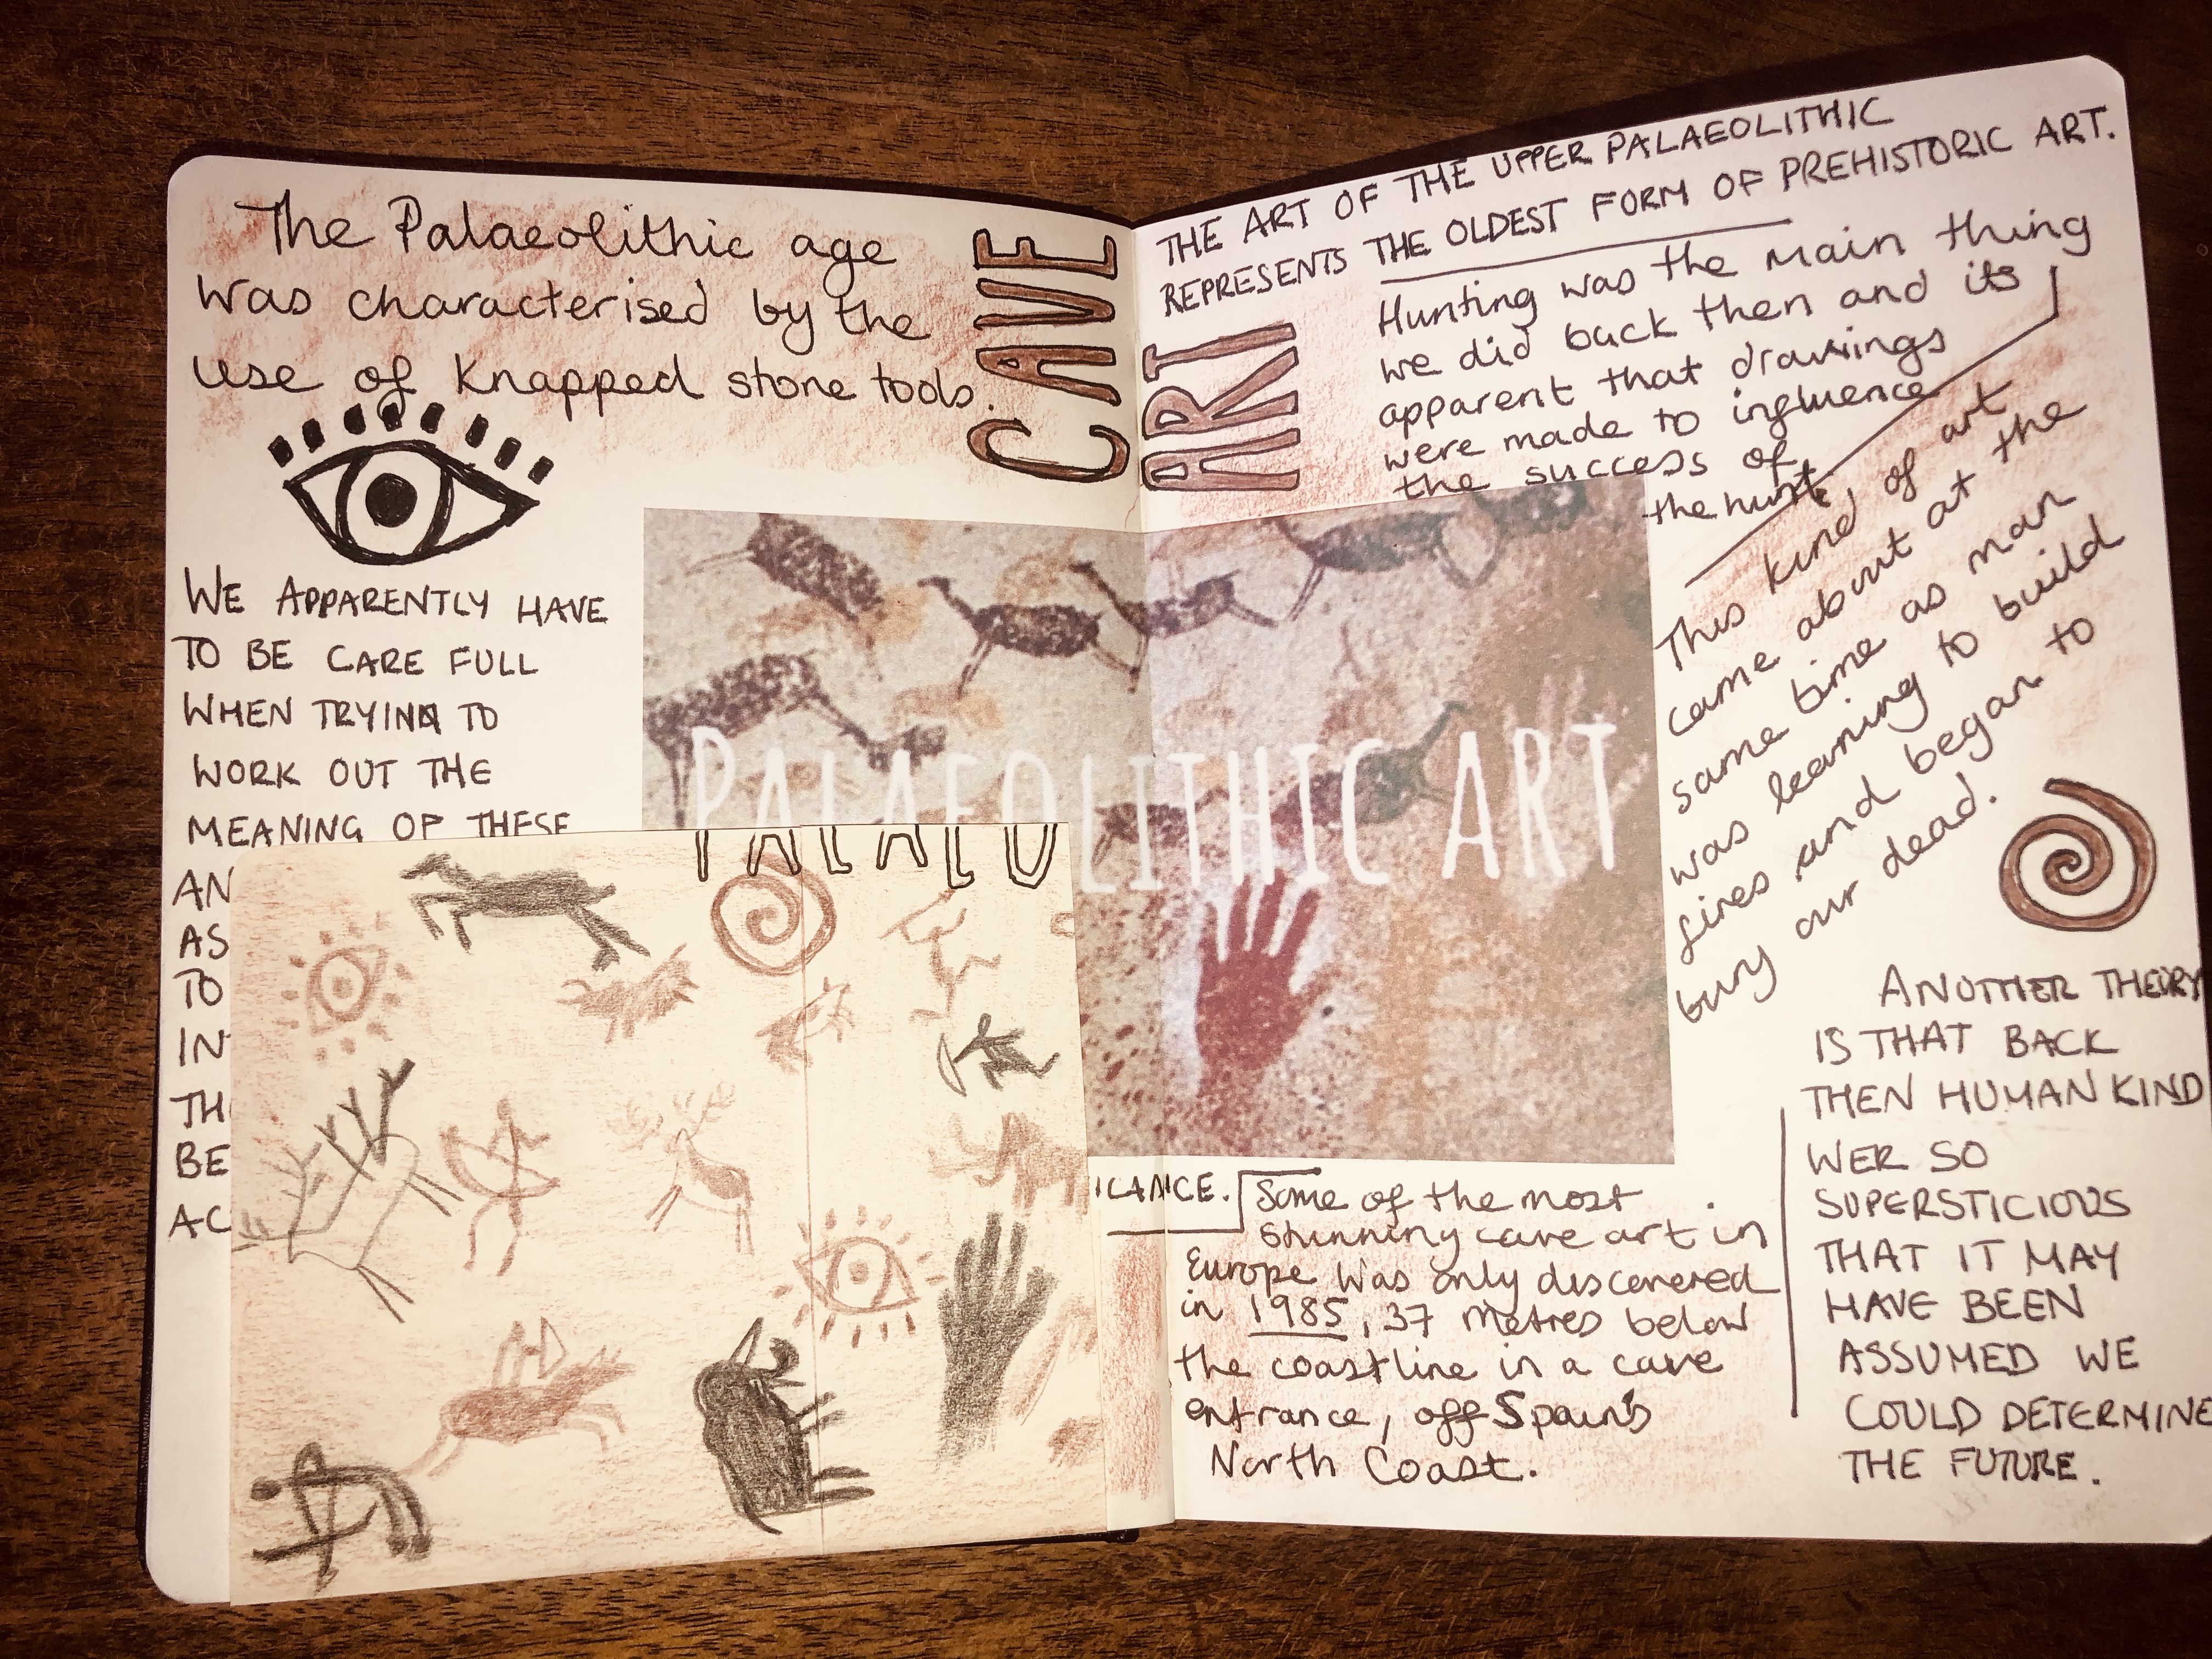 The Palaeolithic age
was characterised by the
use of Knapped stone tools.
CAVE
WE APPARENTLY HAVE
TO BE CARE FULL
WHEN TRYING TO
WORK OUT THE
MEANING OF THESE
AN
AS
TO
IN
TH
BE
AC
PALAEO
PALAEOLITHIC ART
ICANCE.
ART
THE ART OF THE UPPER PALAEOLITHIC
REPRESENTS THE OLDEST FORM OF PREHISTORIC ART.
Hunting was the main thing
we did back then and its
apparent that drawings
were made to influence
the success of
the hunt.
This kind of art
came about at the
same time as man
was leaning to build
fires and began to
bury our dead.
Some of the most
stunning cave art in
Europe was only discovered
in 1985, 37 metres below
the coastline in a cave
entrance, off Spain's
North Coast.
ANOTHER THEORY
IS THAT BACK
THEN HUMAN KIND
WER SO
SUPERSTICIOUS
THAT IT MAY
HAVE BEEN
ASSUMED WE
COULD DETERMINE
THE FUTURE.